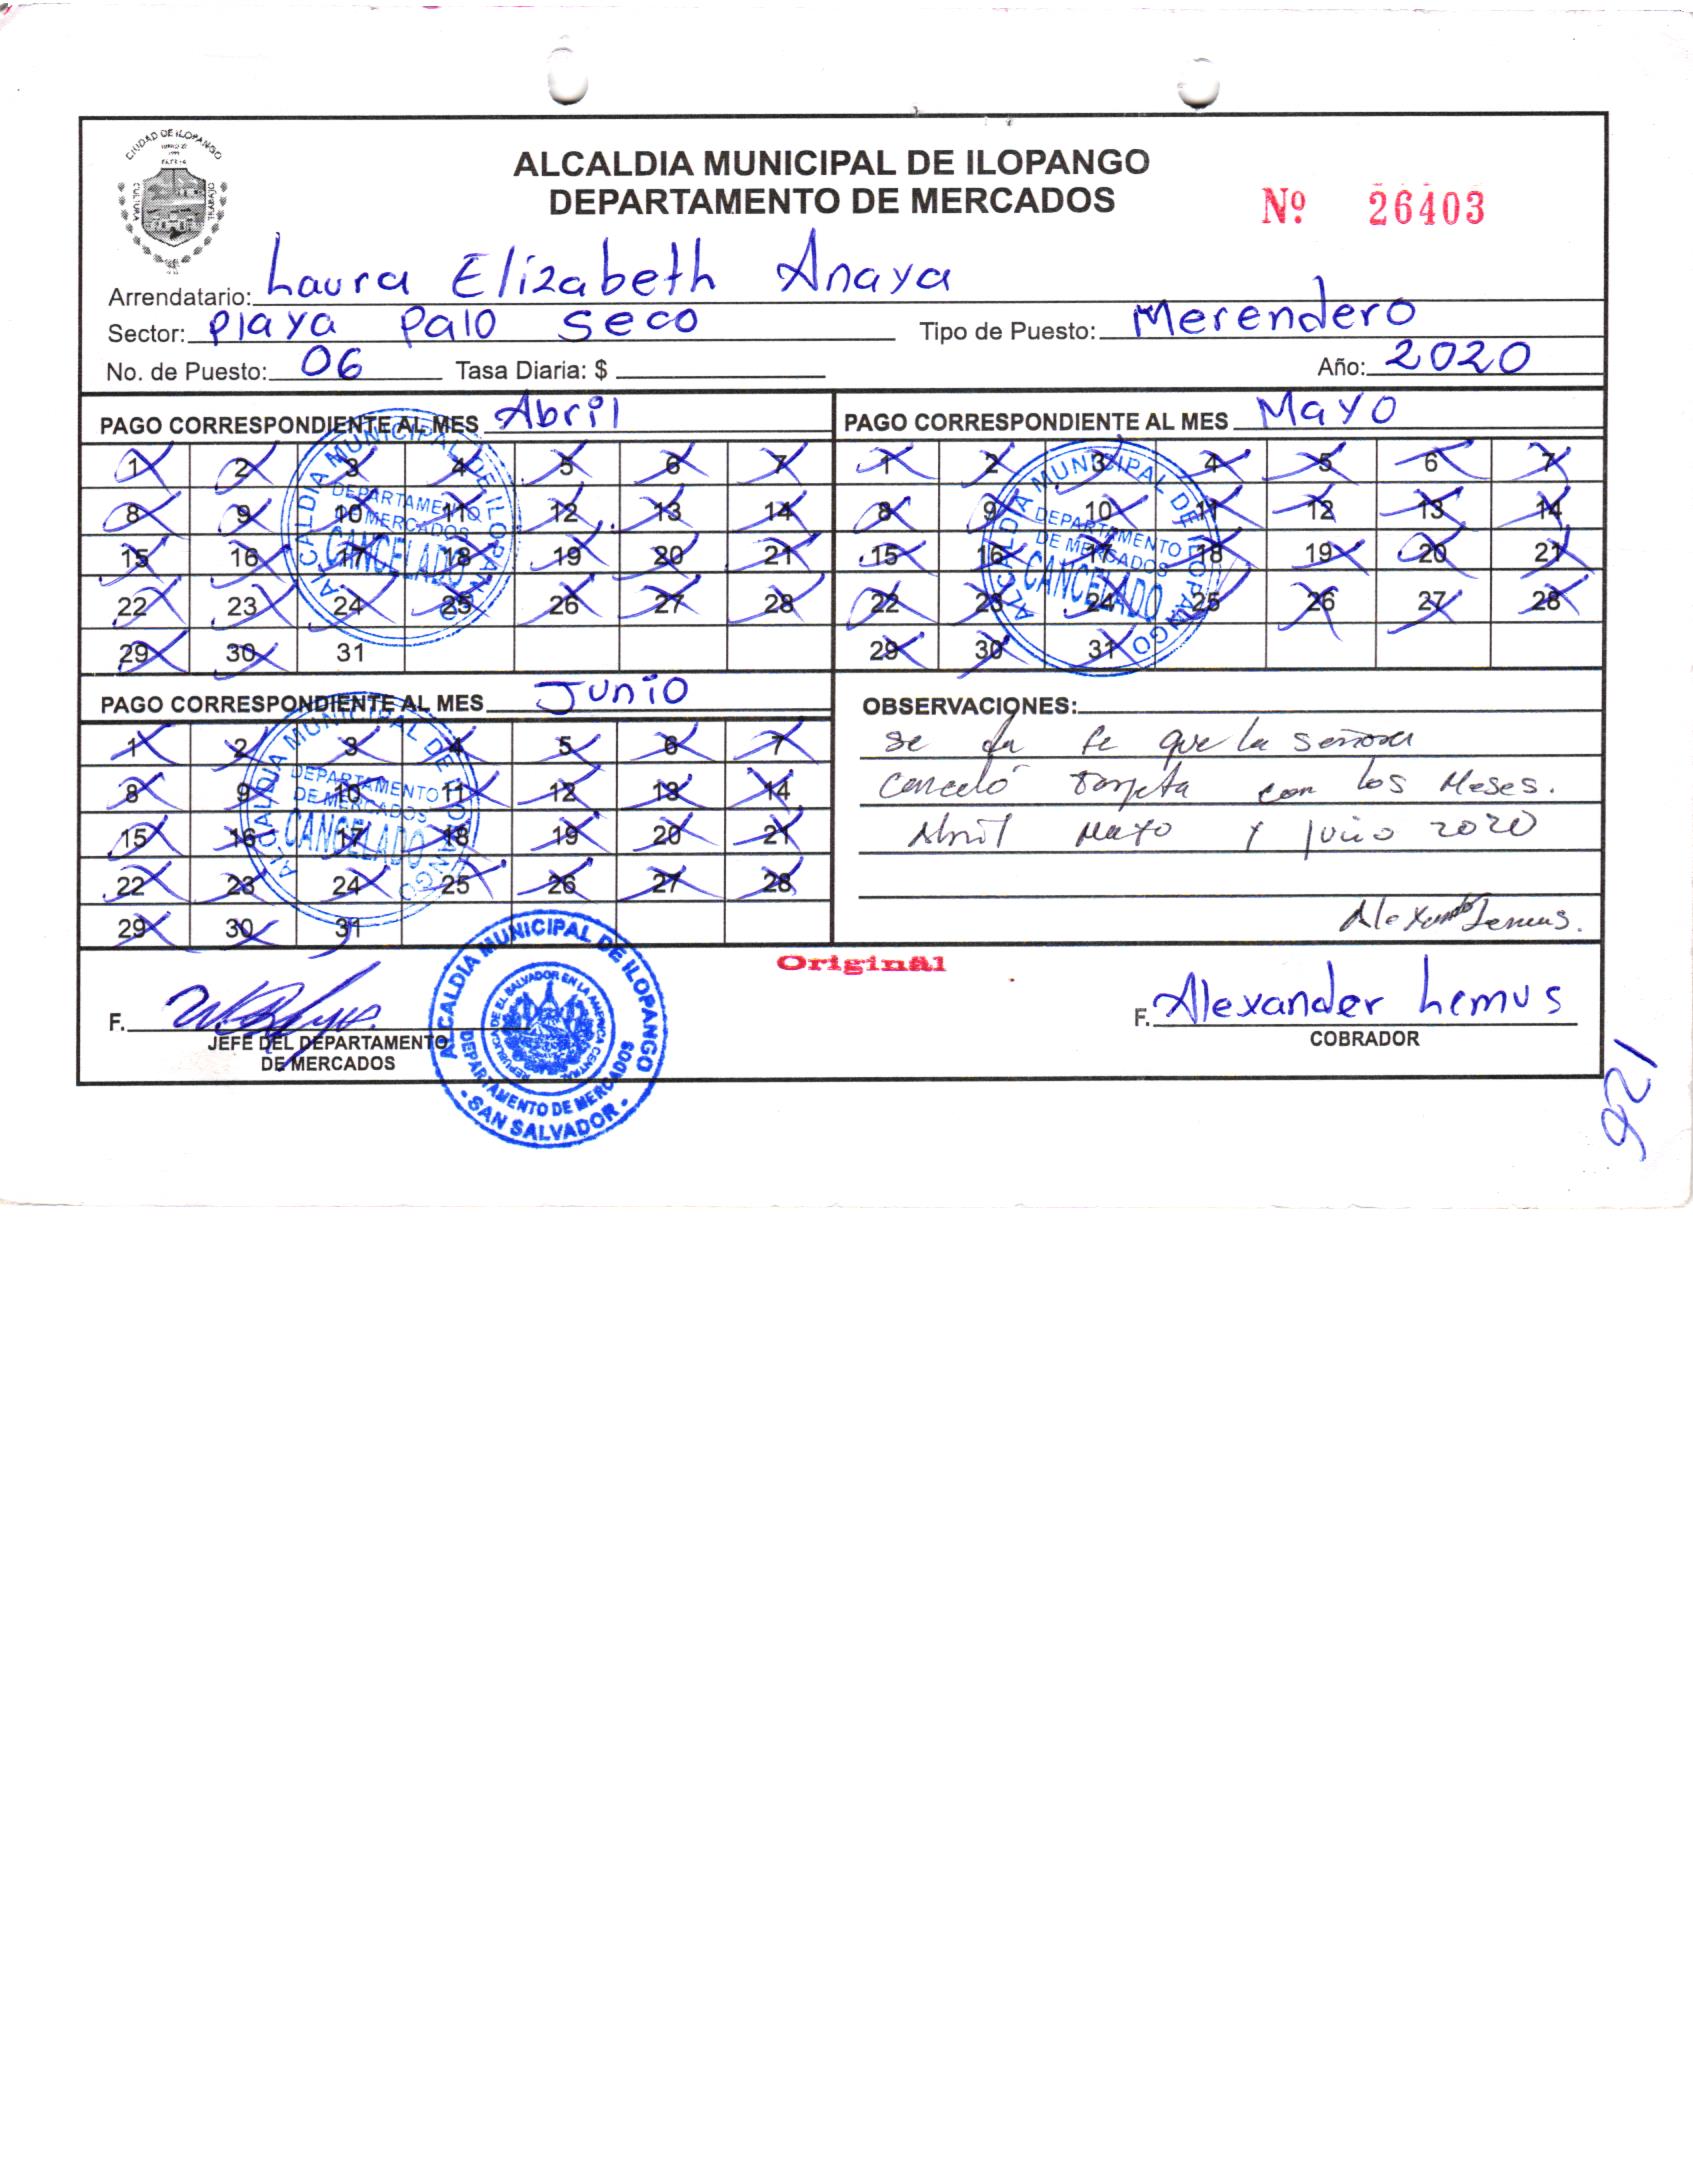 CIUDAD DE ILOPANGO
CULTURA
TRABAJO
ALCALDIA MUNICIPAL DE ILOPANGO
DEPARTAMENTO DE MERCADOS
Nº 26403
Arrendatario: Laura Elizabeth Anaya
Sector: Playa Palo Seco Tipo de Puesto: Merendero
No. de Puesto: 06 Tasa Diaria: $ Año: 2020
PAGO CORRESPONDIENTE AL MES Abril
1 2 3 4 5 6 7
8 9 10 11 12 13 14
15 16 17 18 19 20 21
22 23 24 25 26 27 28
29 30 31
ALCALDIA MUNICIPAL DE ILOPANGO
DEPARTAMENTO
DE MERCADOS
CANCELADO
PAGO CORRESPONDIENTE AL MES Mayo
1 2 3 4 5 6 7
8 9 10 11 12 13 14
15 16 17 18 19 20 21
22 23 24 25 26 27 28
29 30 31
ALCALDIA MUNICIPAL DE ILOPANGO
DEPARTAMENTO
DE MERCADOS
CANCELADO
PAGO CORRESPONDIENTE AL MES Junio
1 2 3 4 5 6 7
8 9 10 11 12 13 14
15 16 17 18 19 20 21
22 23 24 25 26 27 28
29 30 31
ALCALDIA MUNICIPAL DE ILOPANGO
DEPARTAMENTO
DE MERCADOS
CANCELADO
OBSERVACIONES:
se da fe que la señora
canceló tarjeta con los Meses.
Abril Mayo y junio 2020
Alexander Lemus.
Original
F.
JEFE DEL DEPARTAMENTO
DE MERCADOS
ALCALDIA MUNICIPAL DE ILOPANGO
REPUBLICA DE EL SALVADOR EN LA AMERICA CENTRAL
DEPARTAMENTO DE MERCADOS
- SAN SALVADOR -
F. Alexander Lemus
COBRADOR
126